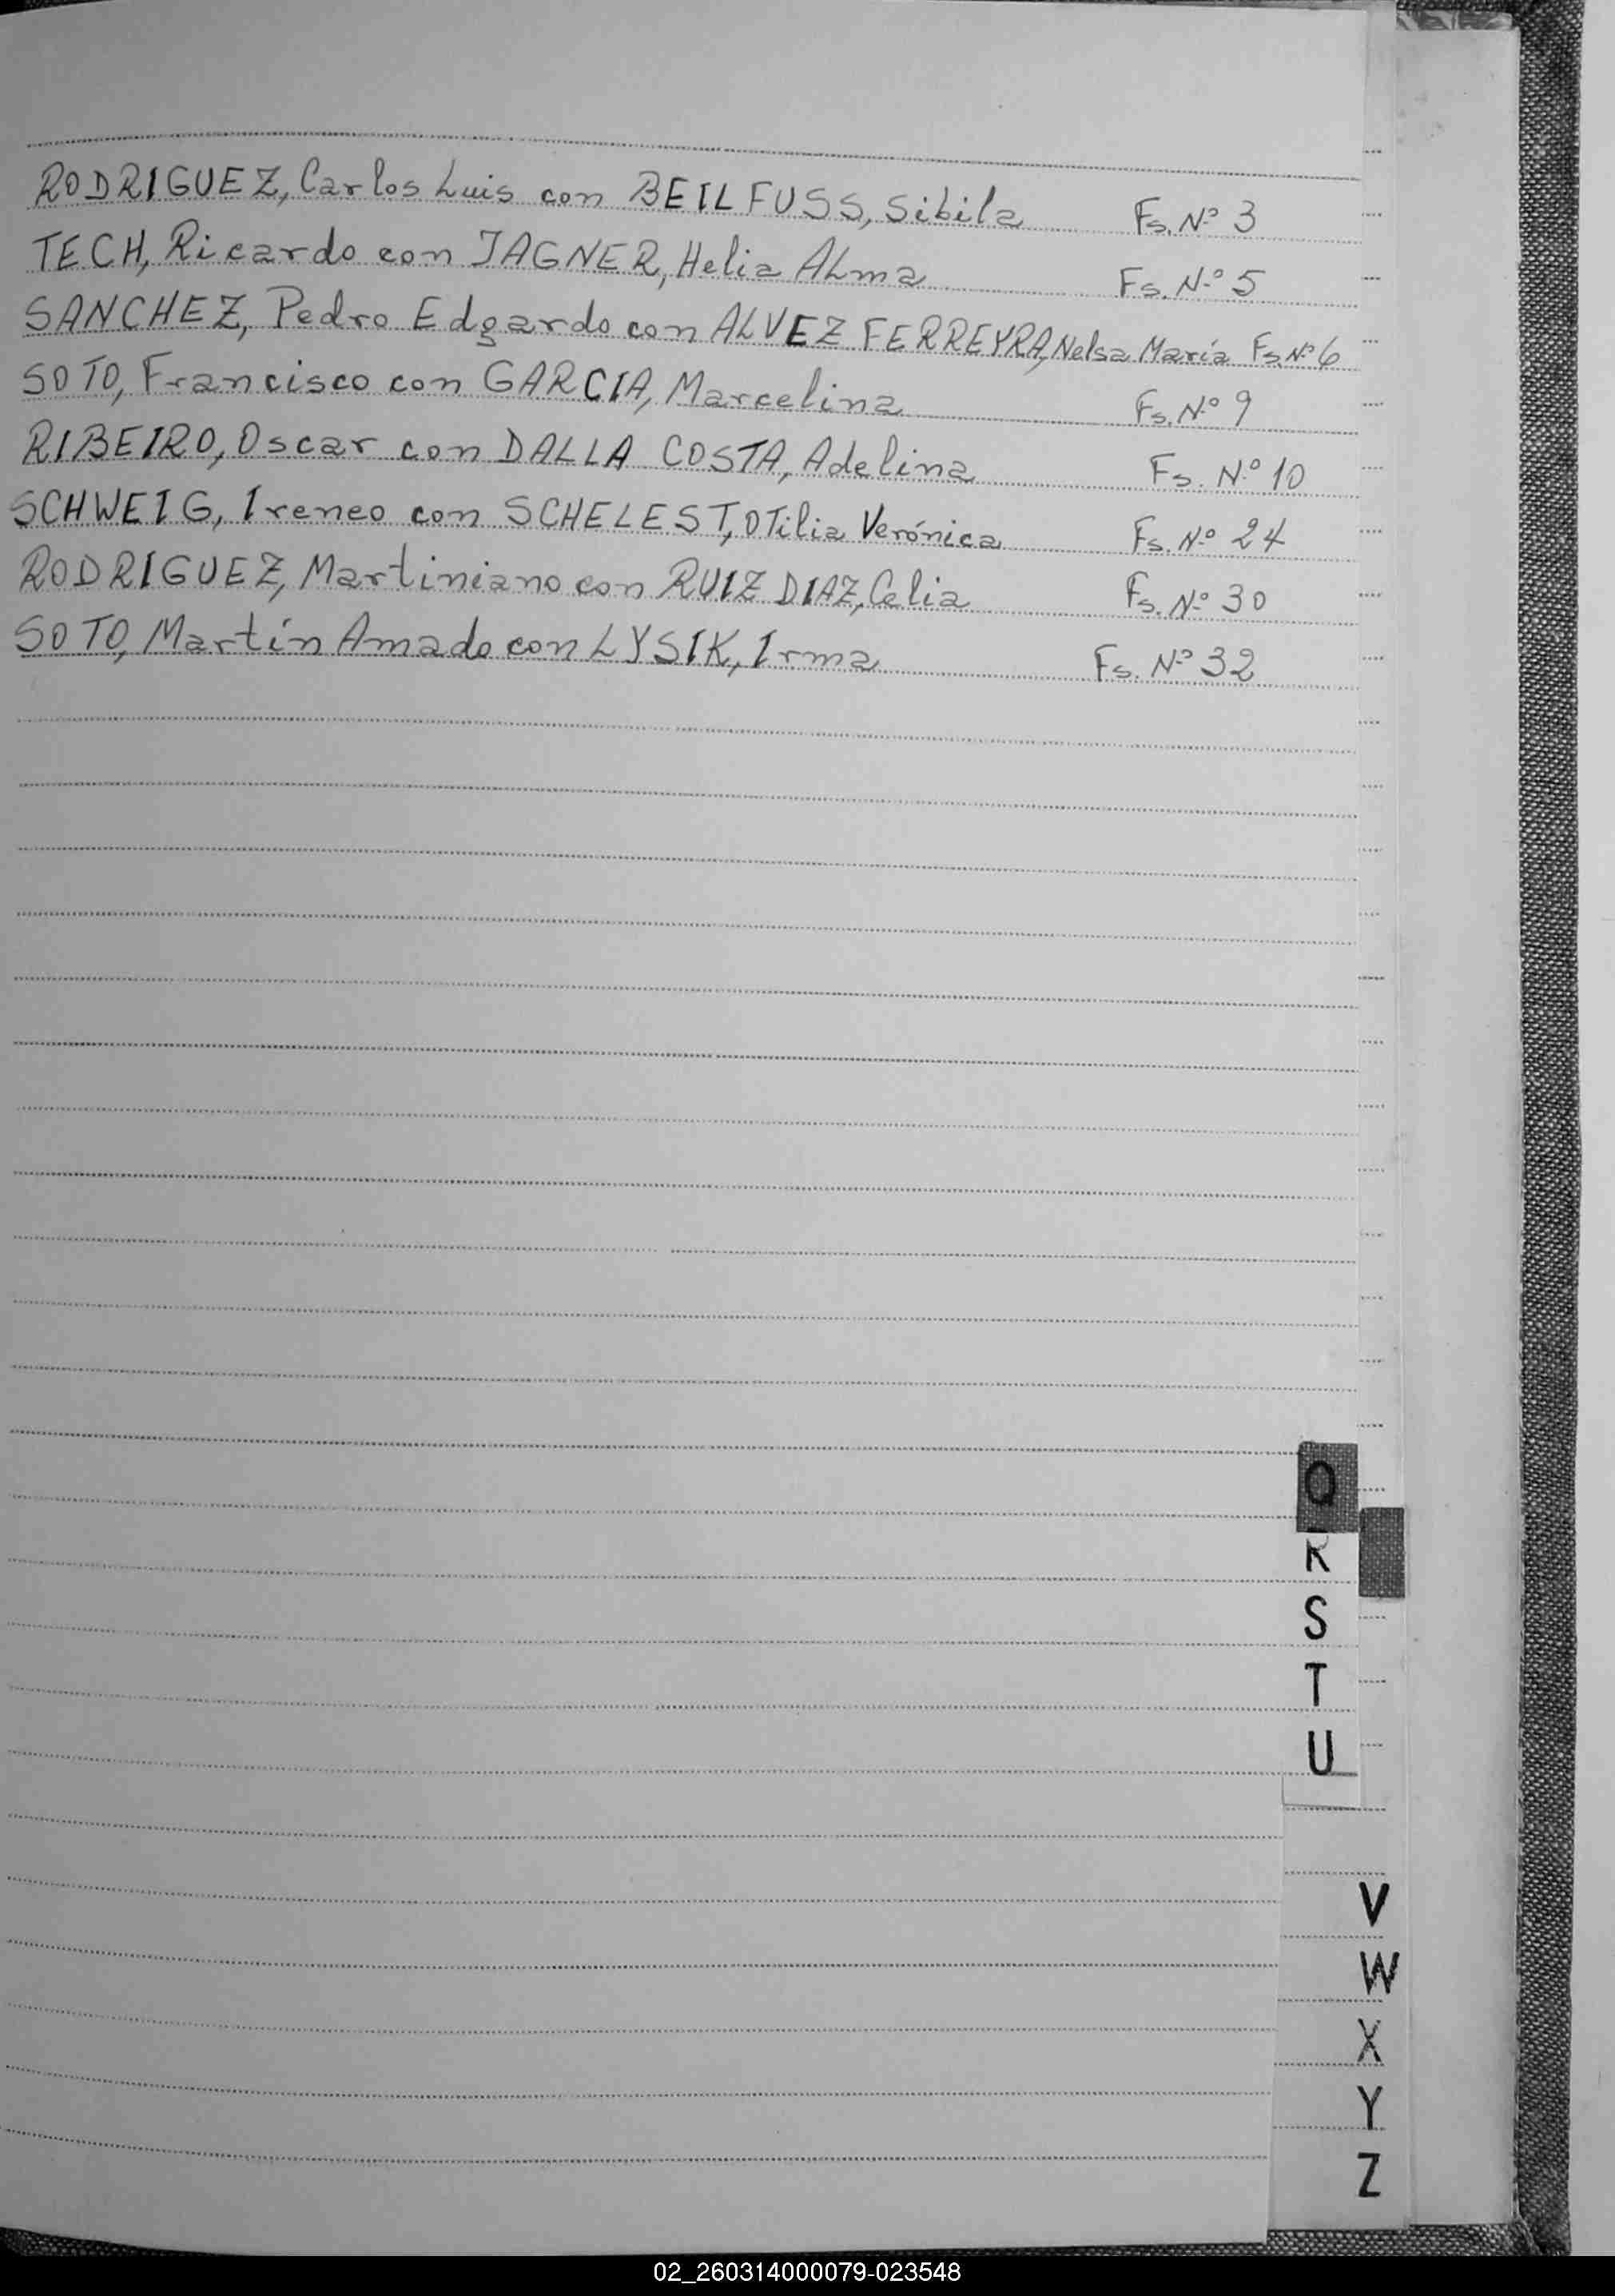 RODRIGUEZ, Carlos Luis con BEILFUSS, Sibila Fs. Nº 3
TECH, Ricardo con JAGNER, Helia ALma Fs. Nº 5
SANCHEZ, Pedro Edgardo con ALVEZ FERREYRA, Nelsa María Fs. Nº 6
SOTO, Francisco con GARCIA, Marcelina Fs. Nº 9
RIBEIRO, Oscar con DALLA COSTA, Adelina Fs. Nº 10
SCHWEIG, Ireneo con SCHELEST, OTilia Verónica Fs. Nº 24
RODRIGUEZ, Martiniano con RUIZ DIAZ, Celia Fs. Nº 30
SOTO, Martín Amado con LYSIK, Irma Fs. Nº 32
Q
R
S
T
U
V
W
X
Y
Z
02_260314000079-023548